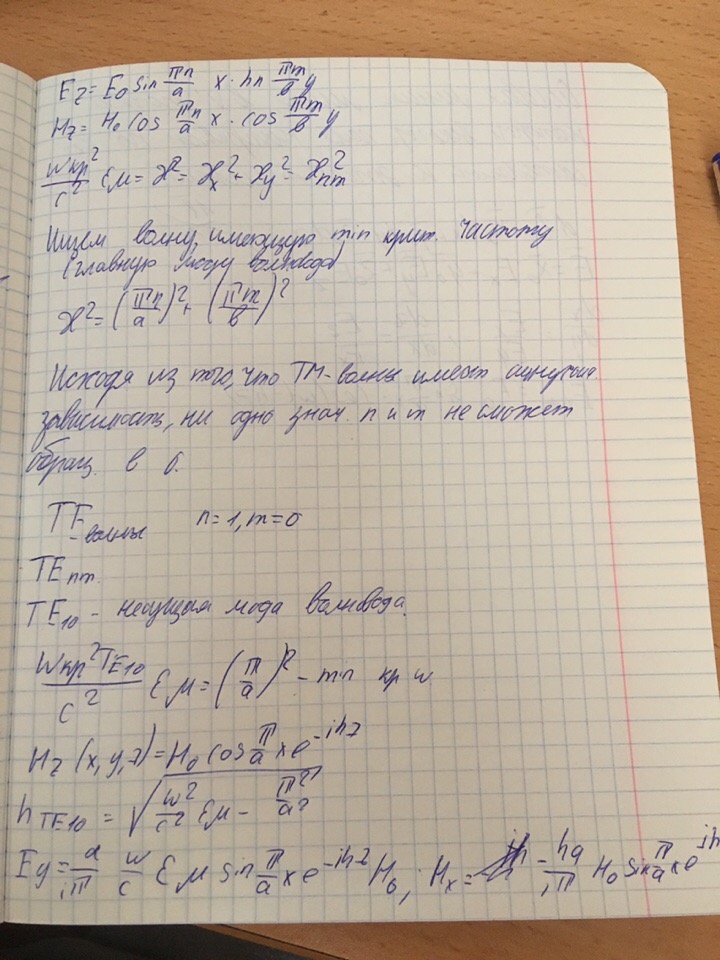 E_z = E_0 sin πn/a x · hn πm/b y
H_z = H_0 cos πn/a x · cos πm/b y
ω_кр²/c² εμ = ϰ² = ϰ_x² + ϰ_y² = ϰ_nm²
Ищем волну, имеющую min крит. частоту
(главную моду волновода)
ϰ² = (πn/a)² + (πm/b)²
Исходя из того, что TM-волны имеют
зависимость, ни одно знач. n и m не сможет
обращ. в 0.
TE-волны n=1, m=0
TE nm
TE_10 - мода волновода.
ω_кр² TE_10/c² εμ = (π/a)² - min кр ω
H_z (x, y, z) = H_0 cos π/a x e^-ihz
h_TE10 = √(ω²/c² εμ - π²/a²)
E_y = a/iπ ω/c εμ sin π/a x e^-ihz H_0; H_x = - ha/iπ H_0 sin π/a x e^ih